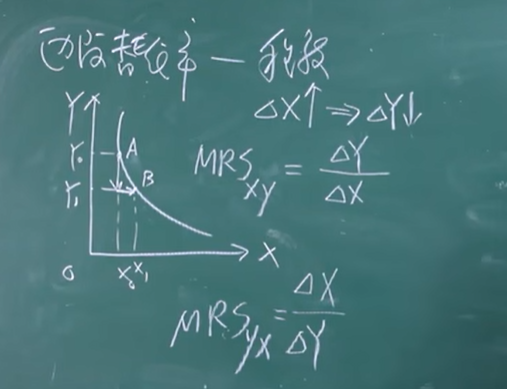 边际替代率 — 我教
△X↑ ⇒ △Y↓
Y
Y₀ A
Y₁ B
O X₀ X₁ X
MRS_XY = △Y/△X
MRS_YX = △X/△Y